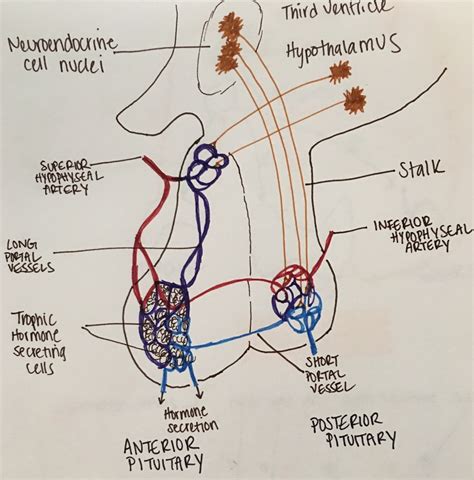 Third Ventricle
Neuroendocrine
cell nuclei
Hypothalamus
Superior
Hypophyseal
Artery
Stalk
Inferior
Hypophyseal
Artery
Long
Portal
Vessels
Trophic
Hormone
Secreting
Cells
Short
Portal
Vessel
Hormone
secretion
Anterior
Pituitary
Posterior
Pituitary